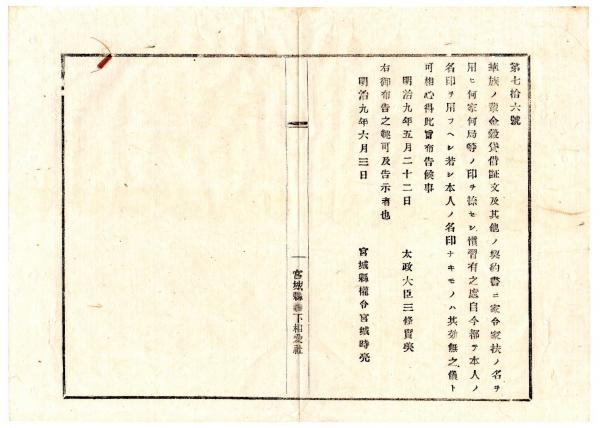 第七拾六號
華族ノ輩金穀貸借証文及其他ノ契約書ニ家令家扶ノ名ヲ
用ヒ何家何局等ノ印ヲ捺セシ慣習有之處自今都テ本人ノ
名印ヲ用フヘシ若シ本人ノ名印ナキモノハ其効無之儀ト
可相心得此旨布告候事
明治九年五月二十二日
太政大臣三條實美
右御布告之趣可及告示者也
明治九年六月三日
宮城縣權令宮城時亮
宮城縣下相愛社